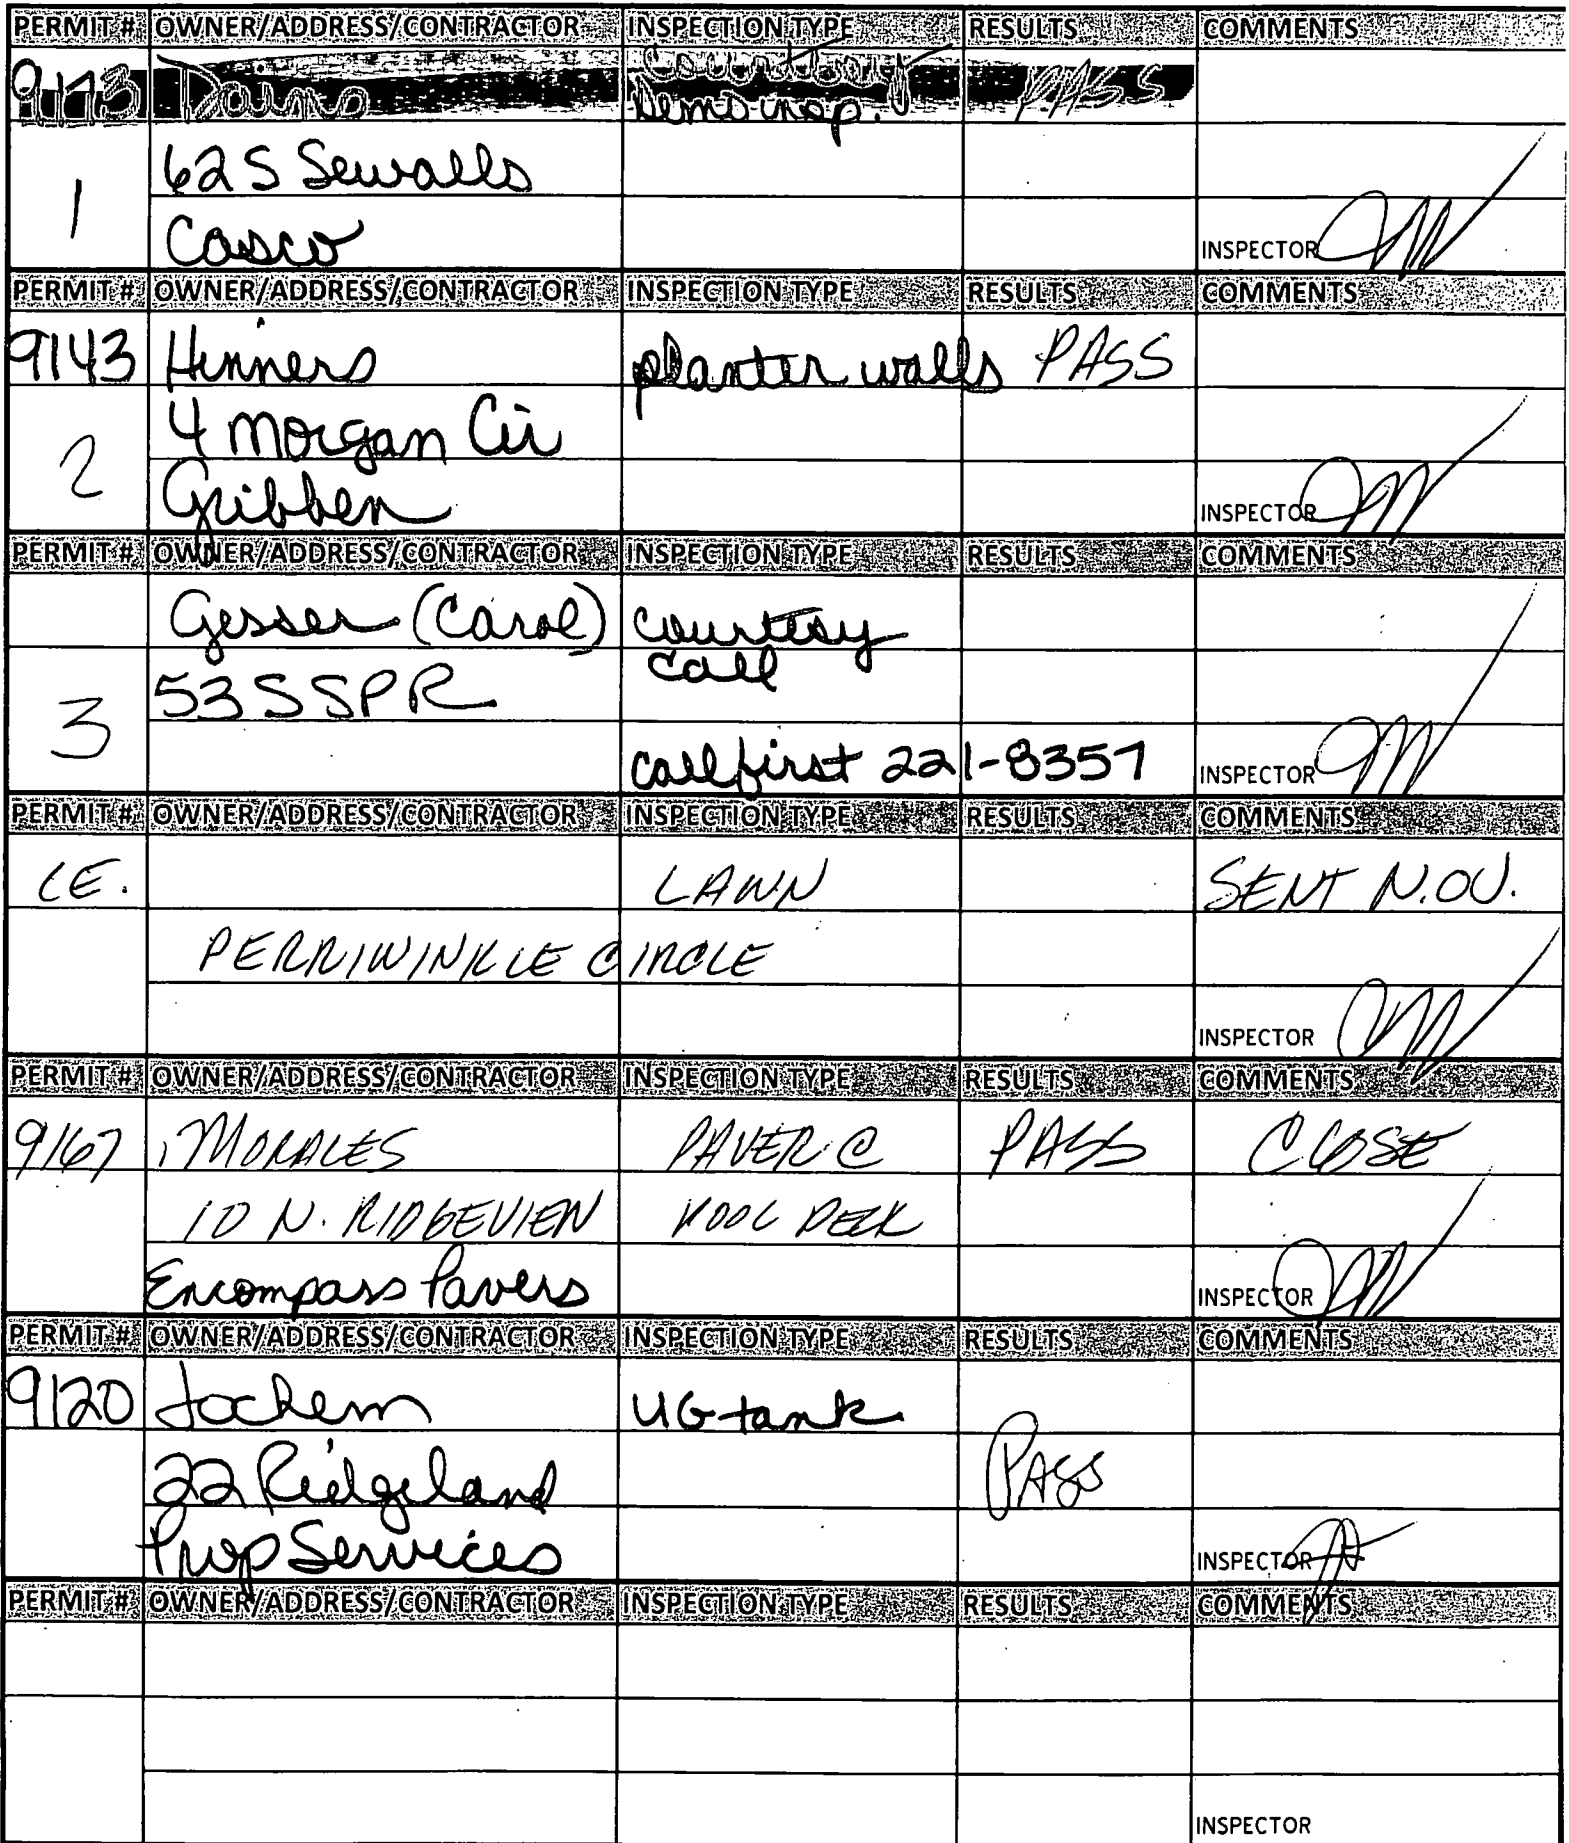 PERMIT # OWNER/ADDRESS/CONTRACTOR INSPECTION TYPE RESULTS COMMENTS
Dains Courtesy PASS
Demo insp.
1 62 S Sewalls
Casco INSPECTOR
PERMIT # OWNER/ADDRESS/CONTRACTOR INSPECTION TYPE RESULTS COMMENTS
9143 Hinners planter walls PASS
2 4 Morgan Cir
Gribben INSPECTOR
PERMIT # OWNER/ADDRESS/CONTRACTOR INSPECTION TYPE RESULTS COMMENTS
Gesser (Carol) courtesy
call
3 53 S SPR
call first 221-8357 INSPECTOR
PERMIT # OWNER/ADDRESS/CONTRACTOR INSPECTION TYPE RESULTS COMMENTS
CE. LAWN SENT N.OV.
PERRIWINKLE CIRCLE
INSPECTOR
PERMIT # OWNER/ADDRESS/CONTRACTOR INSPECTION TYPE RESULTS COMMENTS
9167 MORALES PAVER @ PASS CLOSE
10 N. RIDGEVIEW POOL DECK
Encompass Pavers INSPECTOR
PERMIT # OWNER/ADDRESS/CONTRACTOR INSPECTION TYPE RESULTS COMMENTS
9120 Jochem UG tank
22 Ridgeland PASS
Prop Services INSPECTOR
PERMIT # OWNER/ADDRESS/CONTRACTOR INSPECTION TYPE RESULTS COMMENTS
INSPECTOR